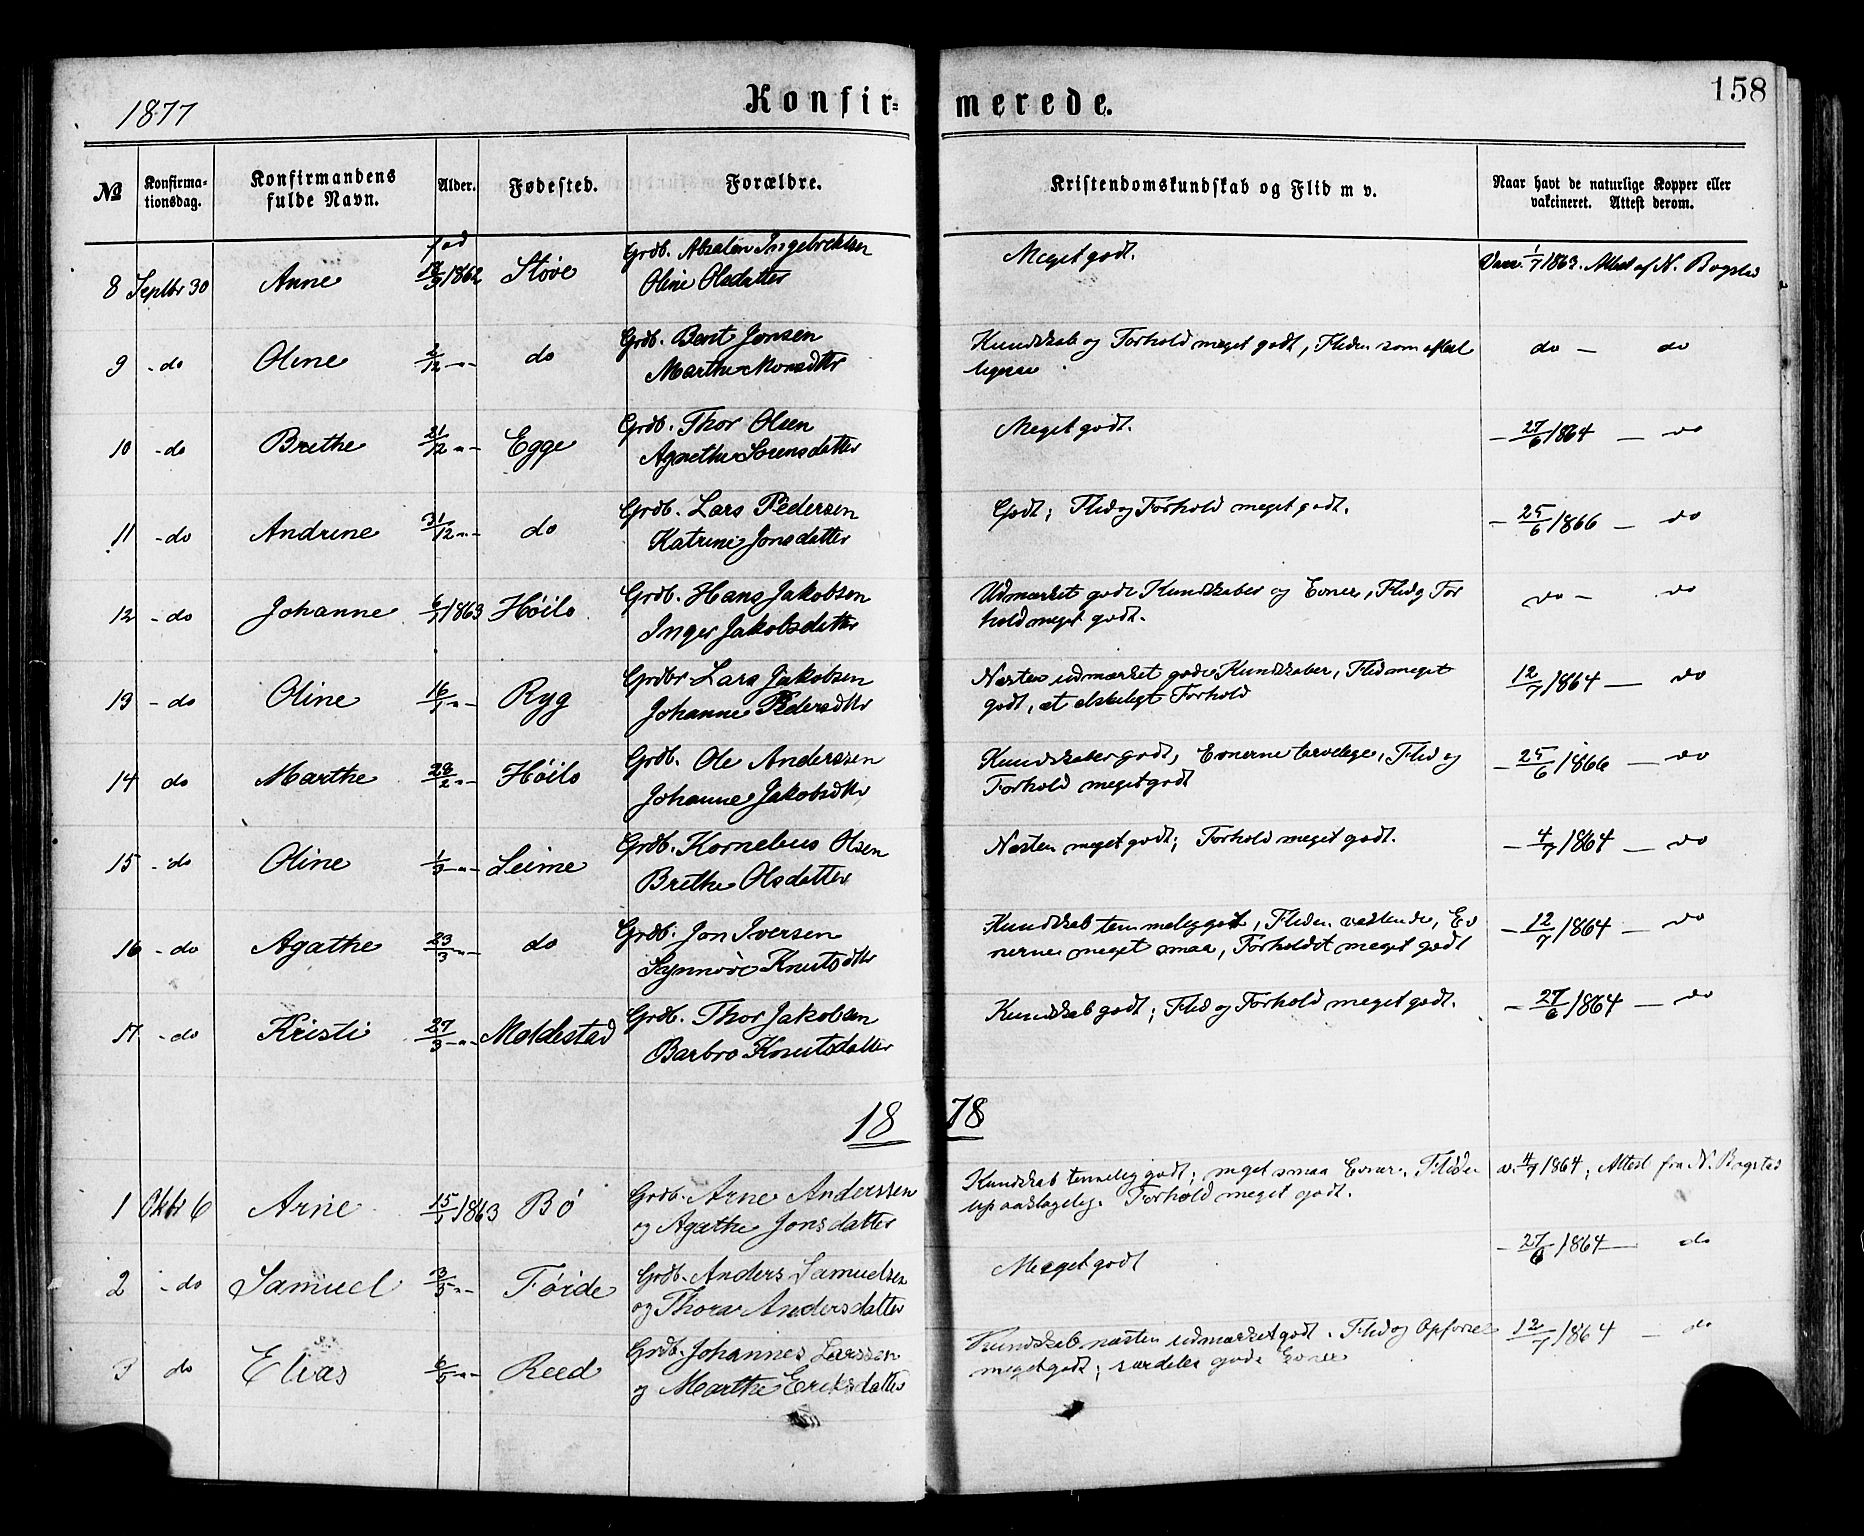 1877
Konfir-
merede.
158
No
Konfirma-
tionsdag.
Konfirmandens
fulde Navn.
Alder.
Fødested.
Forældre.
Kristendomskundskab og Flid m v.
Naar havt de naturlige Kopper eller
vakcineret. Attest derom.
8 Septbr 30 Anne fød 9/1862 Støve Grdb. Absalon Ingebrektsen
Oline Olsdatter
Meget godt.
Vacc. 1/7 1863. Attest af N. Bogstad
9 - do Oline 2/12 -"- do Grdb. Bent Jonsen
Marthe Monsdtr
Kundskab og Forhold meget godt, Fliden som
do - do
10 - do Brethe 21/12 -"- Egge Grdb. Thor Olsen
Agnethe Sørensdatter
Meget godt.
- 27/6 1864 - do
11 - do Andrine 31/12 -"- do Grdb. Lars Pedersen
Katrine Jonsdatter
Godt; Flid og Forhold meget godt.
- 25/6 1866 - do
12 - do Johanne 6/1 1863 Høilo Grdb. Hans Jakobsen
Inger Jakobsdatter
Udmærket gode Kundskaber og Evner, Flid og For
hold meget godt.
do - do
13 - do Oline 16/1 -"- Ryg Grdbr Lars Jakobsen
Johanne Pedersdtr
Næsten udmærket gode Kundskaber, Flid meget
godt, et elskeligt Forhold
12/7 1864 - do
14 do Marthe 28/2 -"- Høilo Grdb. Ole Anderssen
Johanne Jakobsdtr
Kundskaber godt, Evnerne tarvelige, Flid og
Forhold meget godt
- 25/6 1866 - do
15 - do Oline 1/3 -"- Leime Grdb. Kornelius Olsen
Brethe Olsdatter
Næsten meget godt; Forhold meget godt.
- 4/7 1864 - do
16 - do Agathe 23/3 -"- do Grdb. Jon Iversen
Synnøve Knutsdtr
Kundskab temmelig godt, Fliden vaklende, Ev
nerne meget smaa, Forholdet meget godt
- 12/7 1864 - do
17 - do Kristi 27/3 -"- Moldestad Grdb. Thor Jakobsen
Barbro Knutsdatter
Kundskab godt; Flid og Forhold meget godt.
- 27/6 1864 - do
18 78
1 Oktbr 6 Arne 15/1 1863 Bø Grdb. Arne Anderssen
og Agathe Jonsdatter
Kundskab temmelig godt; meget smaa Evner. Fliden
upaaklagelig. Forhold meget godt.
v. 4/7 1864; Attest fra N. Bogstad
2 - do Samuel 3/5 -"- Føide Grdb. Anders Samuelsen
og Thora Andersdatter
Meget godt
- 27/6 1864 - do
3 do Elias 6/5 -"- Reed Grdb. Johannes Larssen
og Marthe Eriksdatter
Kundskab næsten udmærket godt. Flid og Opførsel
meget godt; særdeles gode Evner
12/7 1864 - do